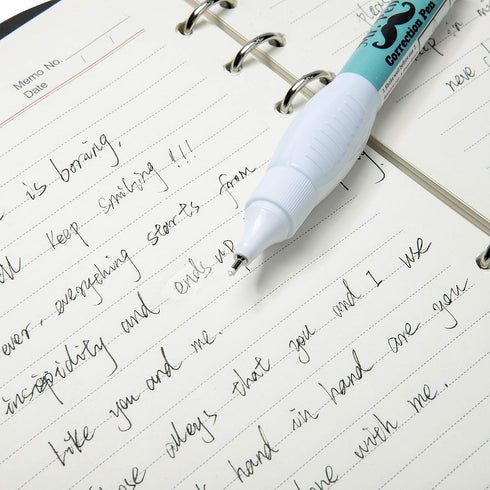 Memo No.
Date
is boring,
keep smiling!!!
ever, everything starts from
insipidity and ends up
like you and me.
always that you and I we
hand in hand are you
with me.
Correction Pen
please
keep in
never